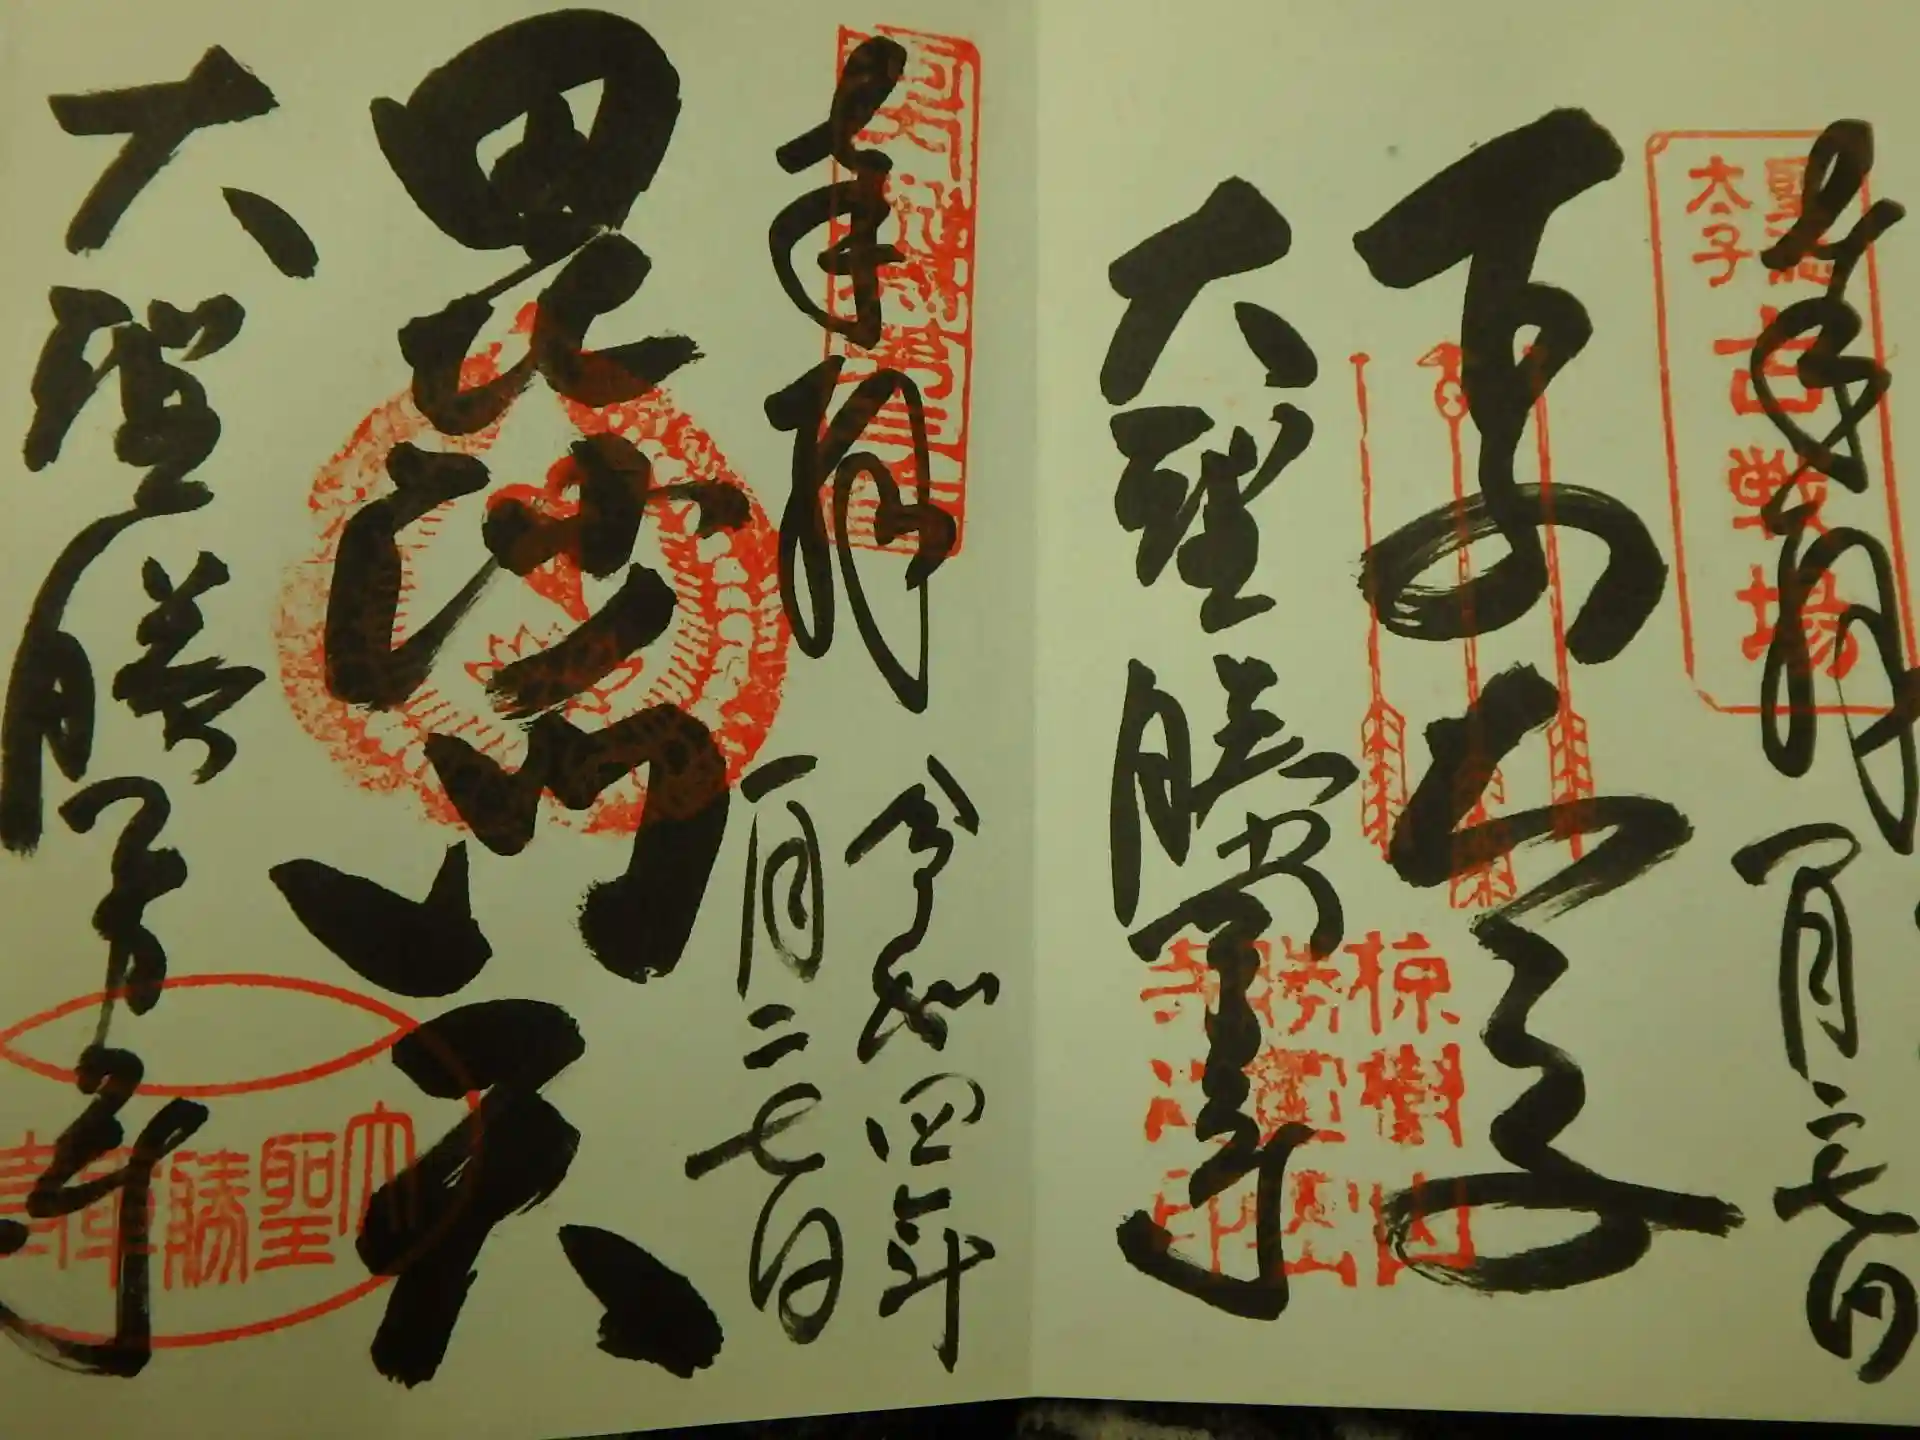 奉拝
聖徳太子
古戦場
一月二七日
下の太子
大聖勝軍寺
椋樹山
奉拝
令和四年
一月二七日
毘沙門天
大聖勝軍寺
大聖勝軍寺